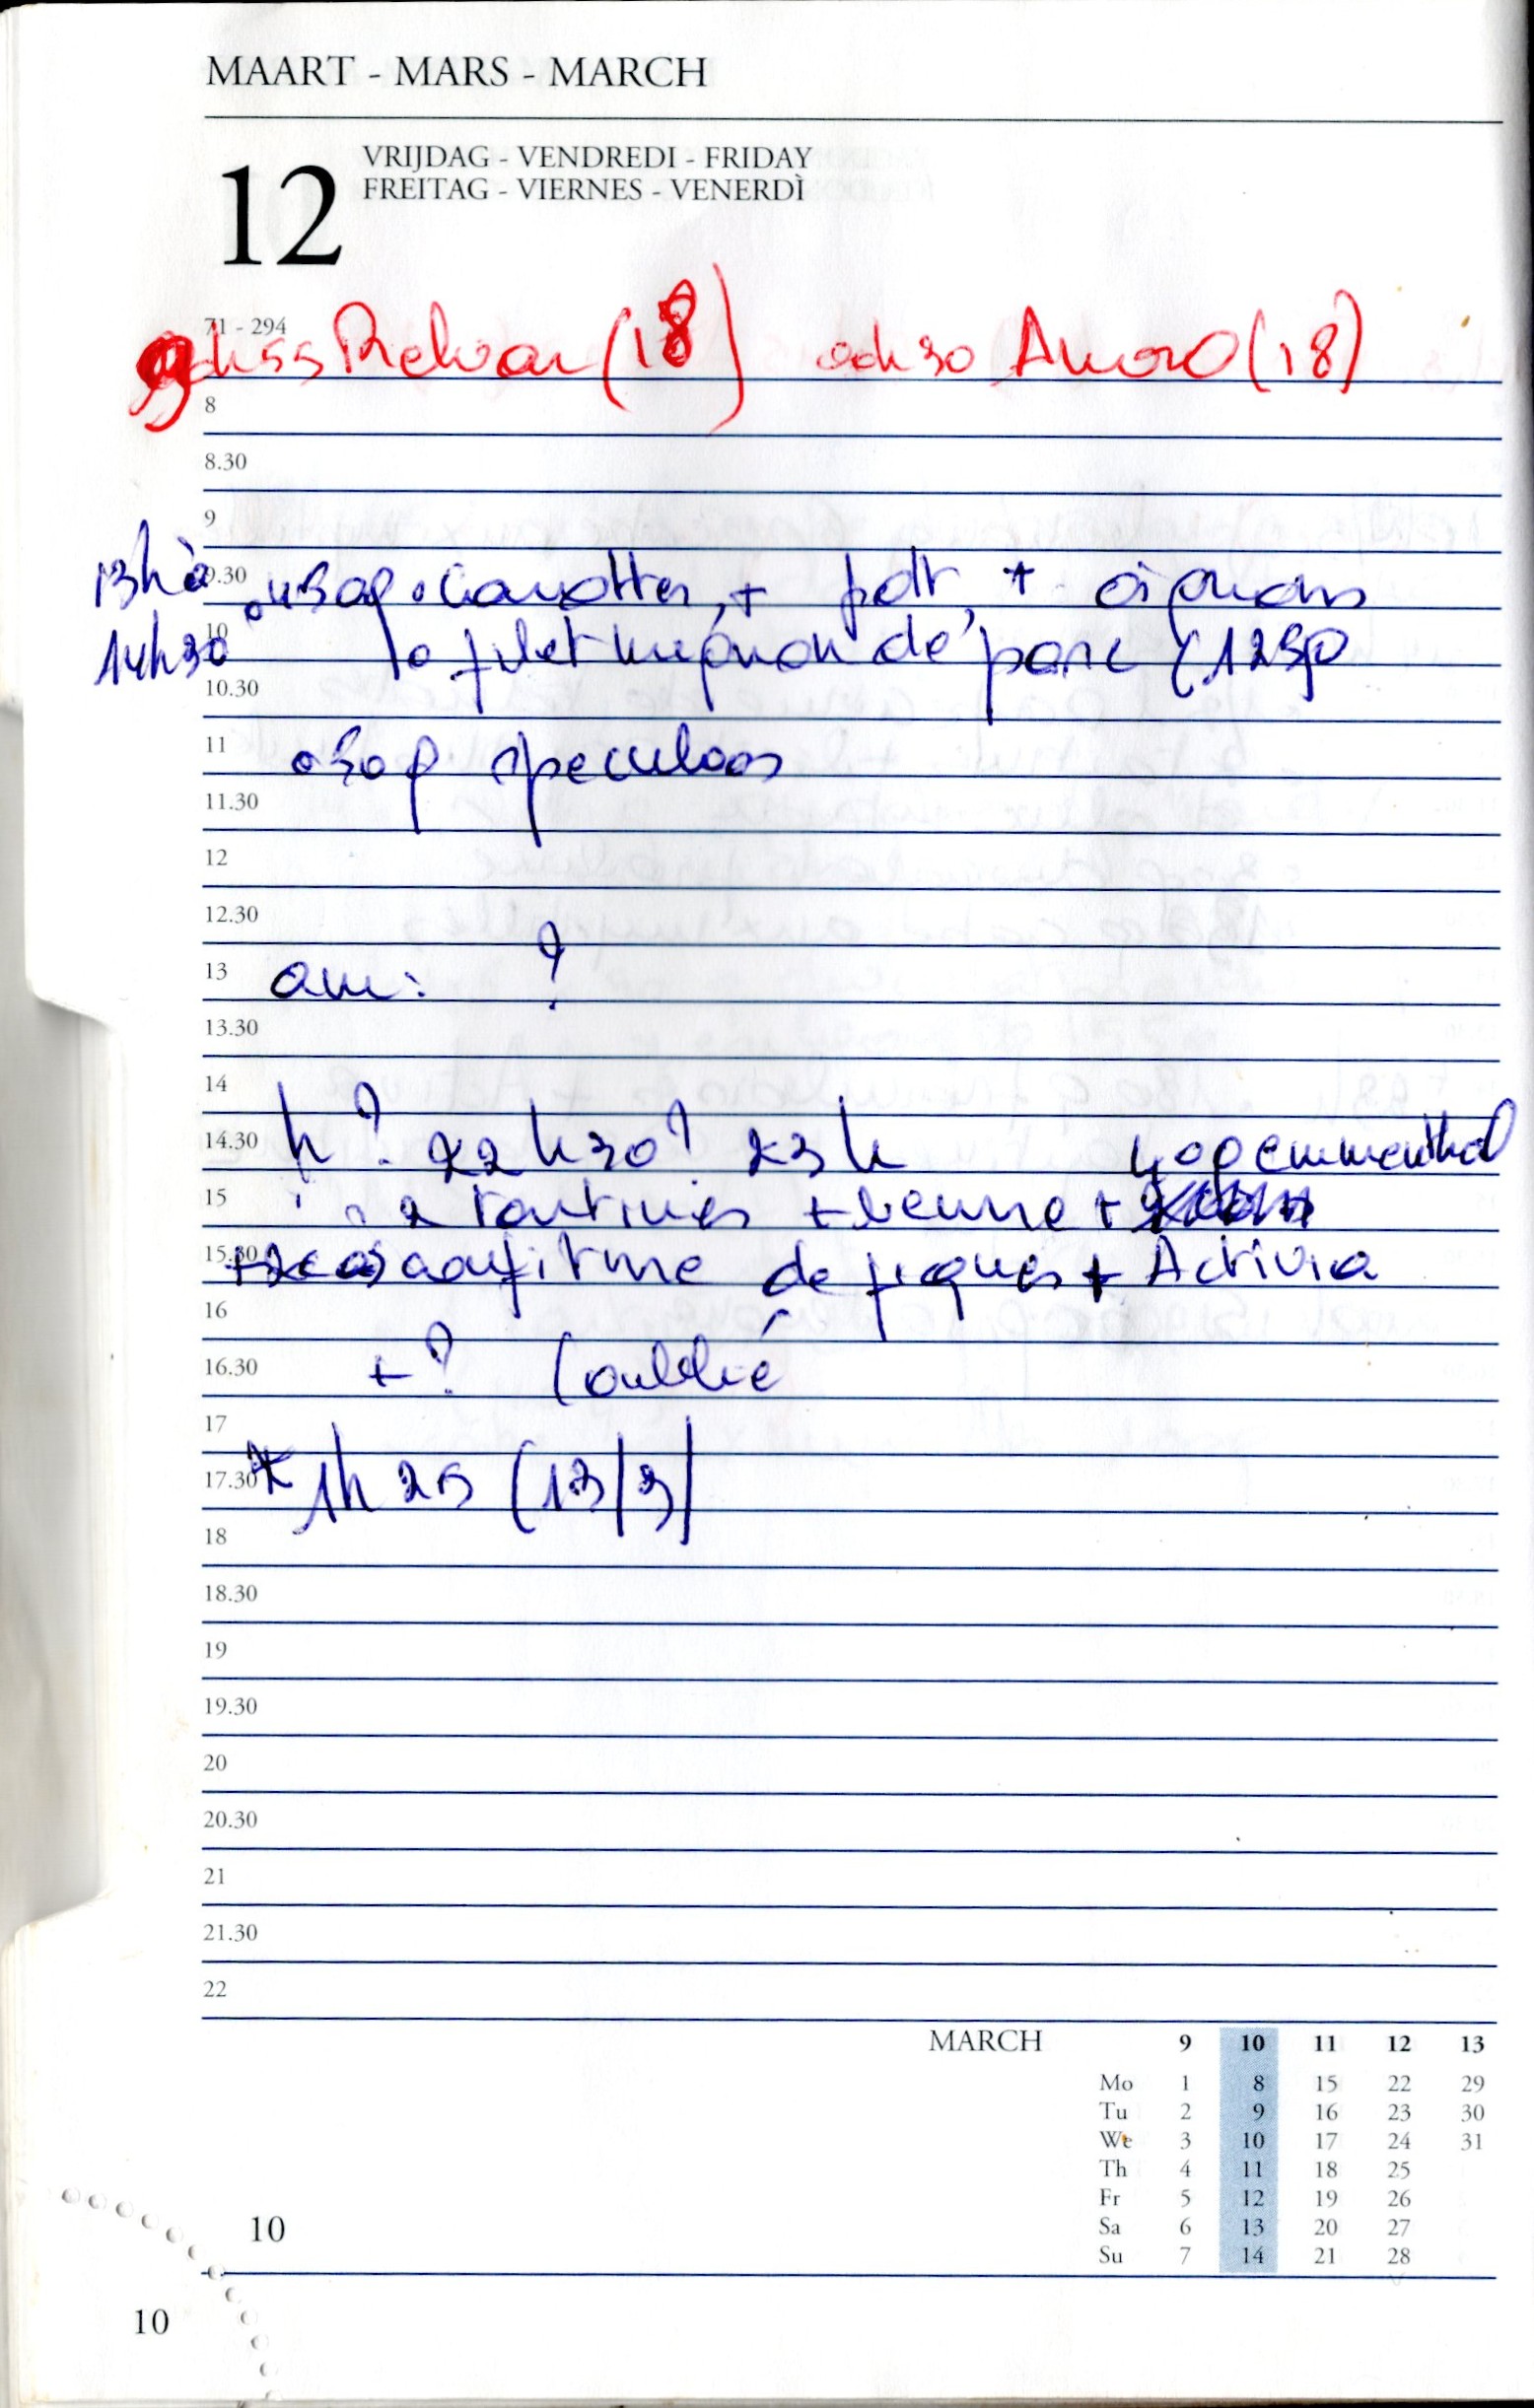 MAART - MARS - MARCH
12
VRIJDAG - VENDREDI - FRIDAY
FREITAG - VIERNES - VENERDÌ
71 - 294
Relvar (18) (18)
8
8.30
9
13h à 9.30 carottes, + pdt, + oignons
14h30 10 filet mignon de porc (125g
10.30
11 50g speculoos
11.30
12
12.30
13 am: ?
13.30
14
14.30 h ? 22h30? 23h 40g emmenthal
15 2 tartines + beurre +
15.30 confiture de figues + Activia
16
16.30 + ? (oublié
17
17.30 * 1h25 (13/3)
18
18.30
19
19.30
20
20.30
21
21.30
22
MARCH 9 10 11 12 13
Mo 1 8 15 22 29
Tu 2 9 16 23 30
We 3 10 17 24 31
Th 4 11 18 25
Fr 5 12 19 26
Sa 6 13 20 27
Su 7 14 21 28
10
10